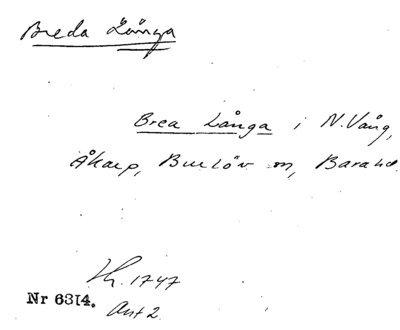 Breda Långa
Brea Långa i N. Vång,
Åkarp, Burlöv sn, Bara hd.
Lh. 1747
Nr 6314.
Ant 2.